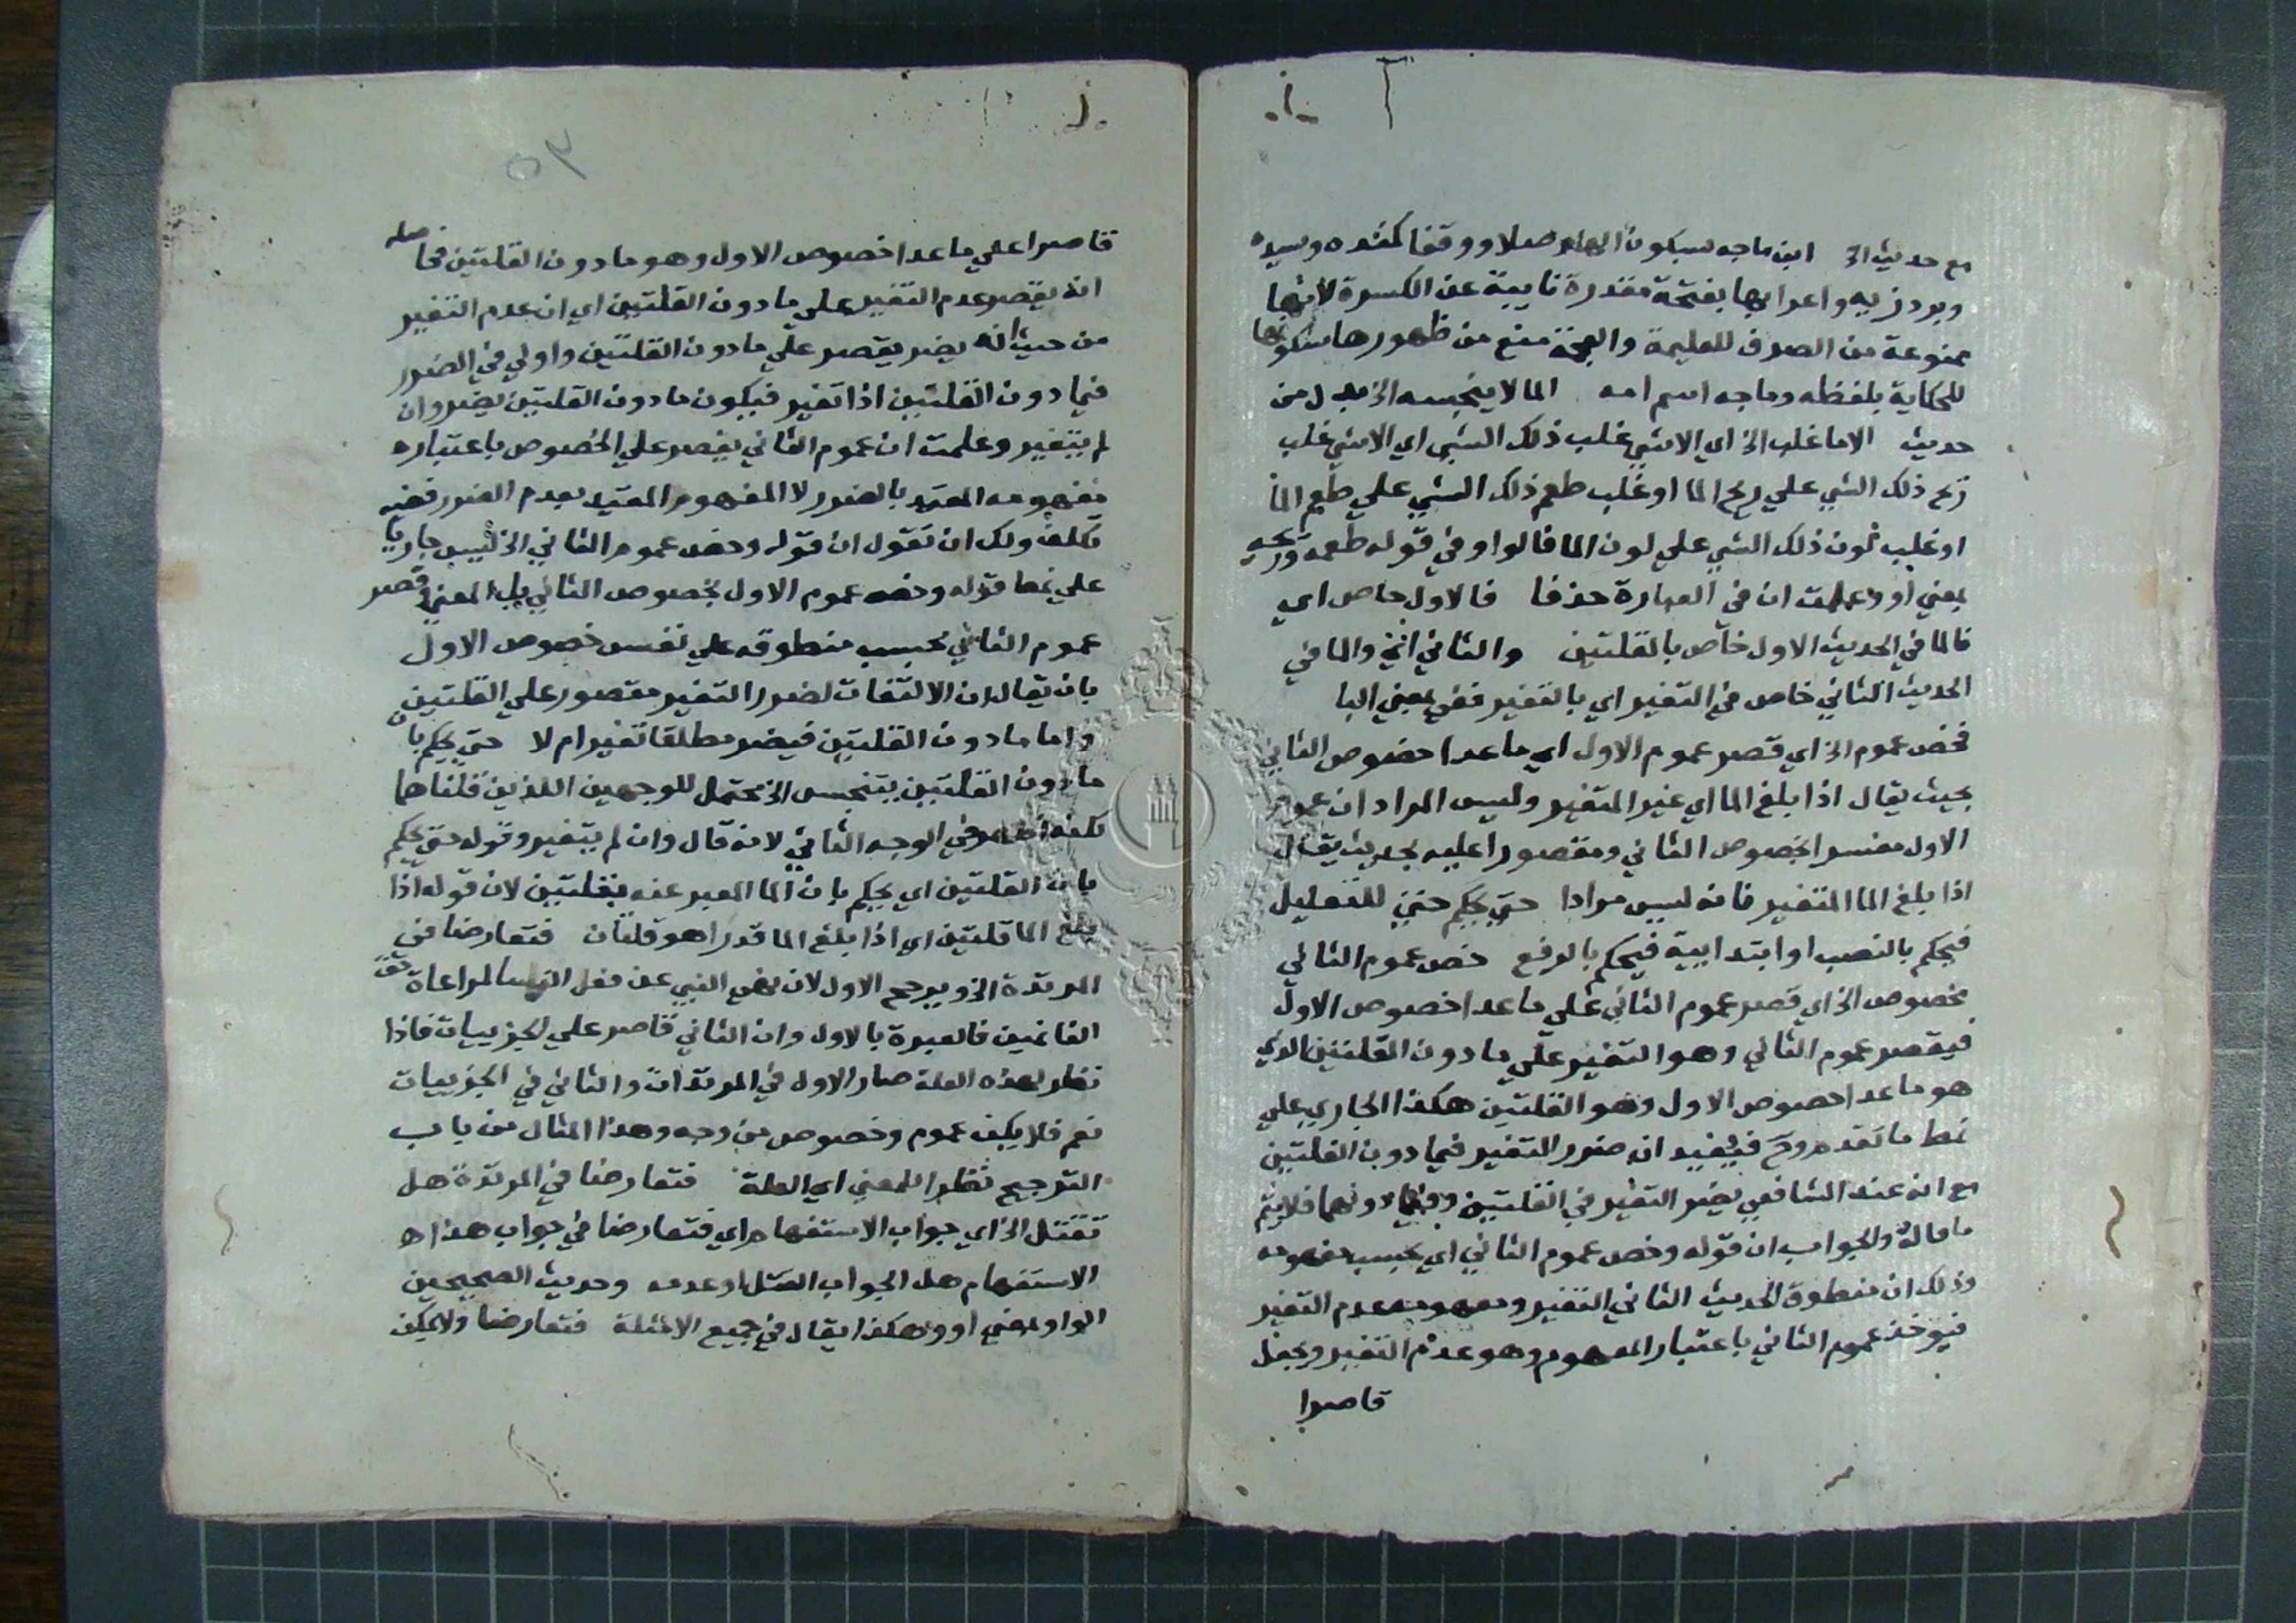 مع حديث الخ ابن ماجه بسكون الهاء وصلا ووقفا كمنده وسيده
وبردزبه واعرابها بفتحة مقدرة نايبة عن الكسرة لانها
ممنوعة من الصرف للعلمية والعجمة منع من ظهورها سكونها
للحكاية بلفظه وماجه اسم امه الما لا ينجسه الخ بدل من
حديث الا ما غلب الخ اي الا شي غلب ذلك الشي اي الا شي غلب
ريح ذلك الشي على ريح الما او غلب طعم ذلك الشي علي طعم الما
او غلب لون ذلك الشي علي لون الما فالواو في قوله طعمه وريحه
بمعني او وعلمت ان في العبارة حذفا فالاول خاص اي
فالما في الحديث الاول خاص بالقلتين والثاني الخ والما في
الحديث الثاني خاص في التغير اي بالتغير ففي بمعني البا
فخص عموم الخ اي قصر عموم الاول اي ما عدا خصوص الثاني
بحيث يقال اذا بلغ الما اي غير المتغير وليس المراد ان عموم
الاول مفسر بخصوص الثاني ومقصورا عليه بحيث يقال
اذا بلغ الما المتغير فانه ليس مرادا حتي يحكم حتي للتعليل
فيحكم بالنصب او ابتدايية فيحكم بالرفع خص عموم الثاني
بخصوص الخ اي قصر عموم الثاني علي ما عدا خصوص الاول
فيقصر عموم الثاني وهو التغير علي ما دون القلتين الذي
هو ما عدا خصوص الاول وهو القلتين هكذا الجاري علي
نمط ما تقدم وح فيفيد ان ضرر التغير فيما دون القلتين
مع انه عند الشافعي يضر التغير في القلتين وفيما دونهما فلا يتم
ما قاله والجواب ان قوله وخص عموم الثاني اي بحسب مفهومه
وذلك ان منطوق الحديث الثاني التغير ومفهومه عدم التغير
فيوخذ عموم الثاني باعتبار المفهوم وهو عدم التغير ويجعل
قاصرا
٥٣
قاصرا علي ما عدا خصوص الاول وهو ما دون القلتين فحاصله
انه يقصر عدم التغير علي ما دون القلتين اي ان عدم التغير
من حيث انه يضر يقصر علي ما دون القلتين واولي في الضرر
فيما دون القلتين اذا تغير فيكون ما دون القلتين يضر وان
لم يتغير وعلمت ان عموم الثاني يقصر علي الخصوص باعتباره
مفهومه المقيد بالضرر لا المفهوم المقيد بعدم الضرر ففيه
تكلف ولك ان تقول ان قوله وخص عموم الثاني الخ ليس جاريا
علي نمط قوله وخص عموم الاول بخصوص الثاني بل المعني قصر
عموم الثاني بحسب منطوقه علي نفس خصوص الاول
بان يقال ان الالتفات لضرر التغير مقصور علي القلتين
واما ما دون القلتين فيضر مطلقا تغير ام لا حتي يحكم بان
ما دون القلتين يتنجس الخ محتمل للوجهين اللذين قلناهما
لكنه اظهر في الوجه الثاني لانه قال وان لم يتغير وقوله حتي يحكم
بان القلتين اي يحكم بان الما المعبر عنه بقلتين لان قوله اذا
بلغ الما قلتين اي اذا بلغ الما قدرا هو قلتان فتعارضا في
المرتدة الخ ويرجح الاول لان نهي النبي عن قتل النسا لمراعاة حق
الغانمين فالعبرة بالاول وان الثاني قاصر علي الحربيات فاذا
نظر لهذه العلة صار الاول في المرتدات والثاني في الحربيات
نعم فلا يكن عموم وخصوص من وجه وهذا المثال من باب
الترجيح نظرا للمعني اي العلة فتعارضا في المرتدة هل
تقتل الخ اي جواب الاستفهام اي فتعارضا في جواب هذا
الاستفهام هل الجواب القتل او عدمه وحديث الصحيحين
الواو بمعني او وهكذا يقال في جميع الامثلة فتعارضا ولا يمكن